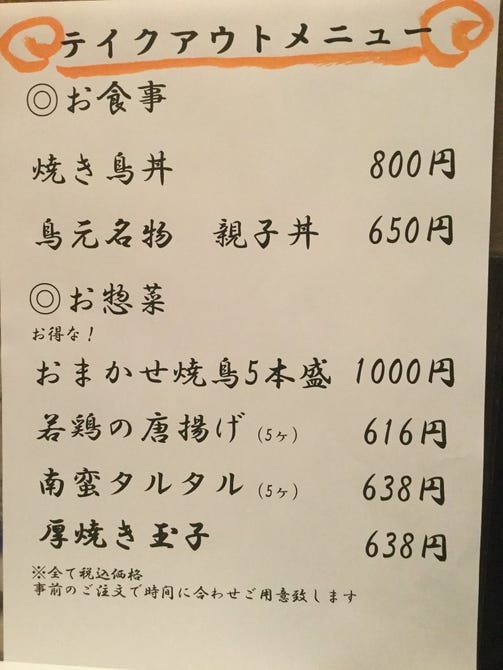 テイクアウトメニュー
◎お食事
焼き鳥丼 800円
鳥元名物 親子丼 650円
◎お惣菜
お得な!
おまかせ焼鳥5本盛 1000円
若鶏の唐揚げ(5ヶ) 616円
南蛮タルタル(5ヶ) 638円
厚焼き玉子 638円
※全て税込価格
事前のご注文で時間に合わせご用意致します